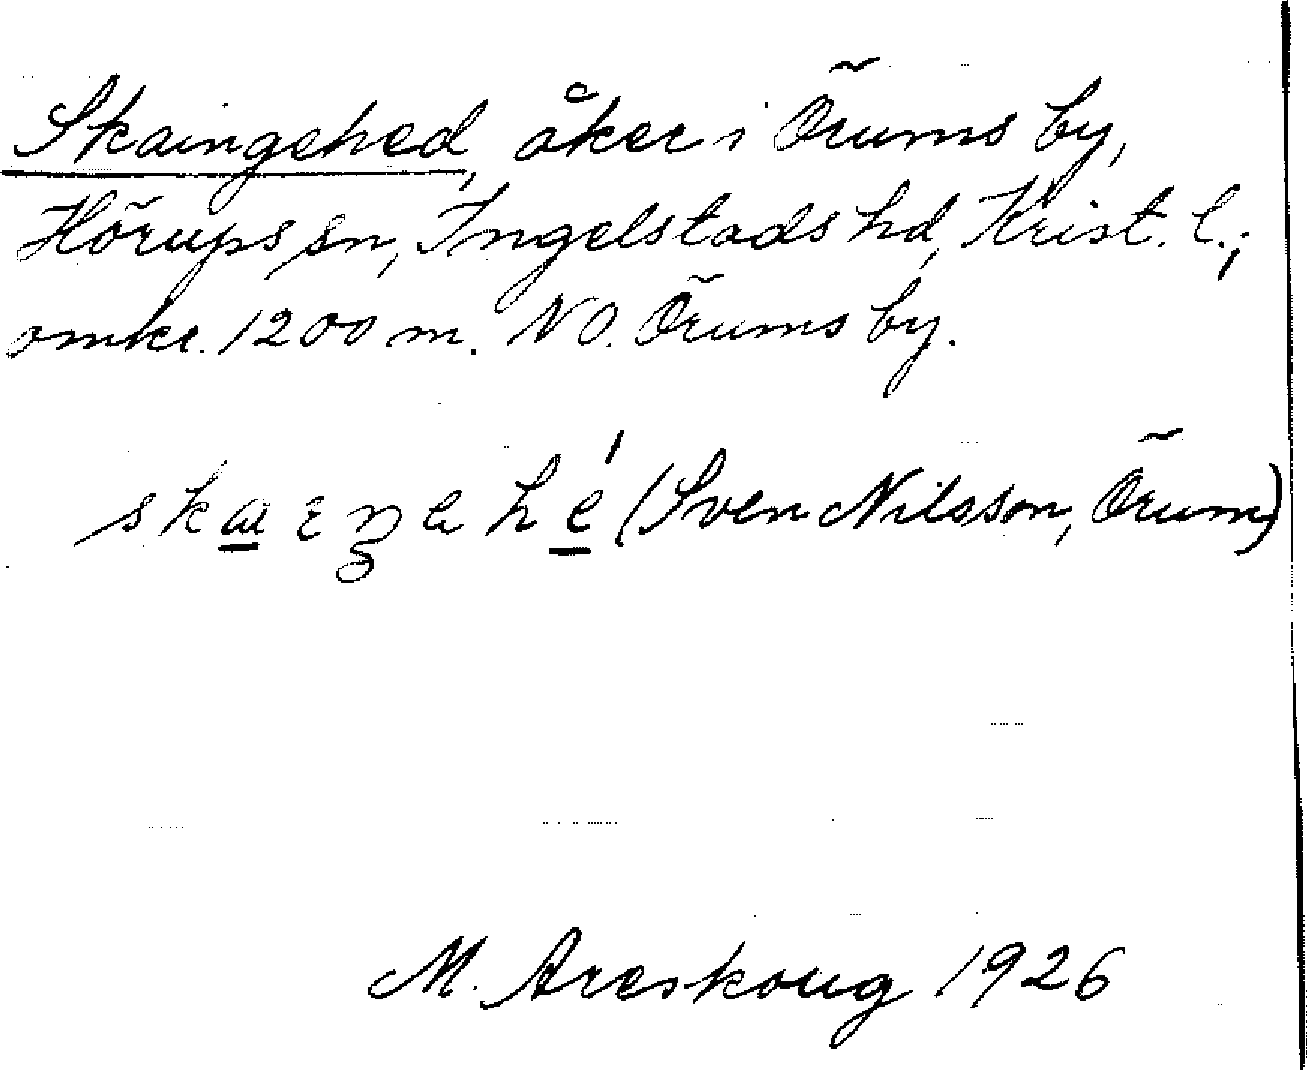 Skaingehed, åker i Örums by,
Hörups sn, Ingelstads hd, Krist. l.;
omkr. 1200 m. NO. Örums by.
(Sven Nilsson, Örum)
M. Areskoug 1926